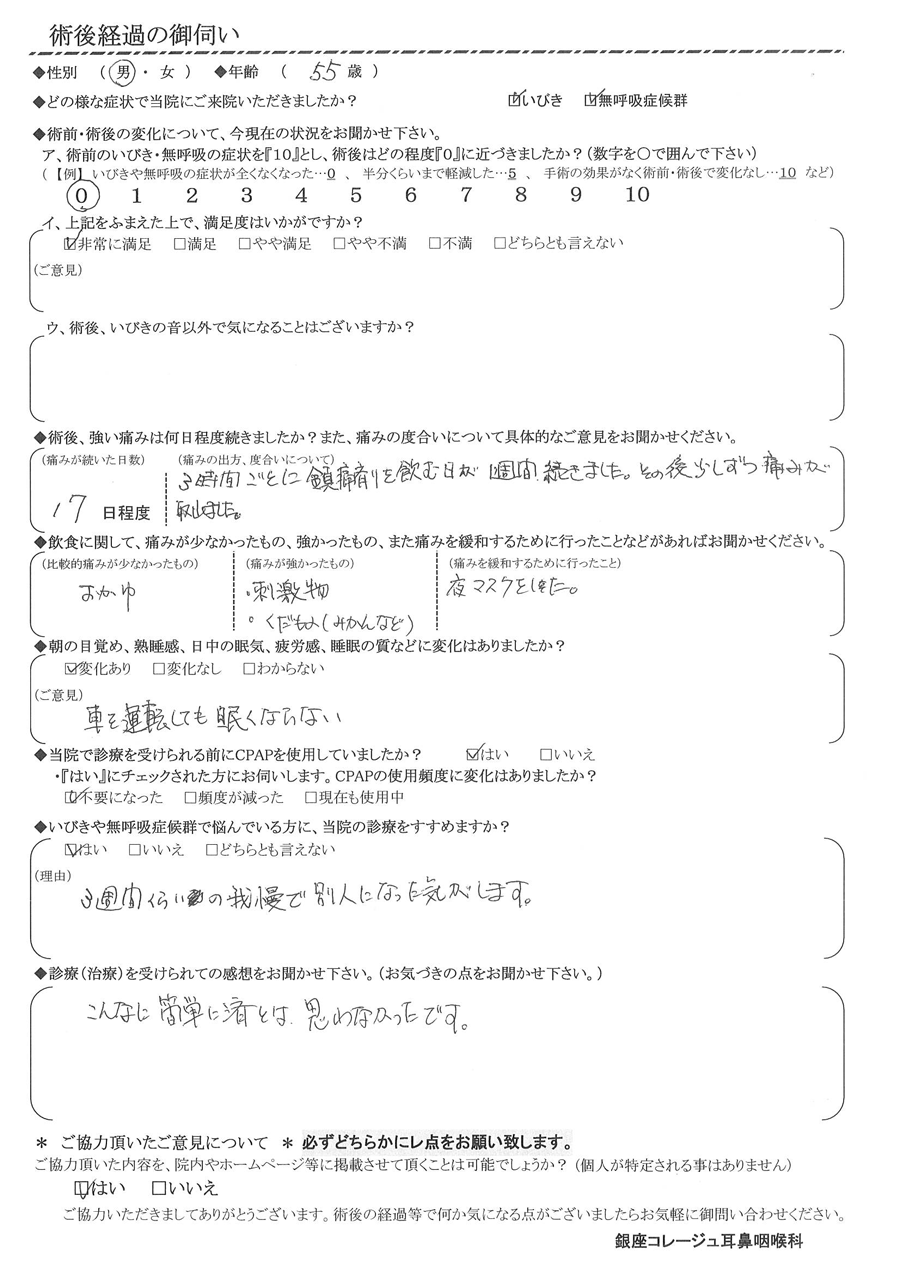 術後経過の御伺い
◆性別 （ 男 ・ 女 ） ◆年齢 （ 55 歳 ）
◆どの様な症状で当院にご来院いただきましたか？ ☑いびき ☑無呼吸症候群
◆術前・術後の変化について、今現在の状況をお聞かせ下さい。
ア、術前のいびき・無呼吸の症状を『10』とし、術後はどの程度『0』に近づきましたか？（数字を〇で囲んで下さい）
（【例】いびきや無呼吸の症状が全くなくなった…0 、 半分くらいまで軽減した…5 、 手術の効果がなく術前・術後で変化なし…10 など）
0 1 2 3 4 5 6 7 8 9 10
イ、上記をふまえた上で、満足度はいかがですか？
☑非常に満足 □満足 □やや満足 □やや不満 □不満 □どちらとも言えない
（ご意見）
ウ、術後、いびきの音以外で気になることはございますか？
◆術後、強い痛みは何日程度続きましたか？また、痛みの度合いについて具体的なご意見をお聞かせください。
（痛みが続いた日数） （痛みの出方、度合いについて）
3時間ごとに鎮痛剤を飲む日が1週間続きました。その後少しずつ痛みが
17 日程度 取れました。
◆飲食に関して、痛みが少なかったもの、強かったもの、また痛みを緩和するために行ったことなどがあればお聞かせください。
（比較的痛みが少なかったもの） （痛みが強かったもの） （痛みを緩和するために行ったこと）
おかゆ ・刺激物 夜マスクをしました。
・くだもの（みかんなど）
◆朝の目覚め、熟睡感、日中の眠気、疲労感、睡眠の質などに変化はありましたか？
☑変化あり □変化なし □わからない
（ご意見）
車を運転しても眠くならない
◆当院で診療を受けられる前にCPAPを使用していましたか？ ☑はい □いいえ
・『はい』にチェックされた方にお伺いします。CPAPの使用頻度に変化はありましたか？
☑不要になった □頻度が減った □現在も使用中
◆いびきや無呼吸症候群で悩んでいる方に、当院の診療をすすめますか？
☑はい □いいえ □どちらとも言えない
（理由）
3週間くらいの我慢で別人になった気がします。
◆診療（治療）を受けられての感想をお聞かせ下さい。（お気づきの点をお聞かせ下さい。）
こんなに簡単に済とは思わなかったです。
＊ ご協力頂いたご意見について ＊ 必ずどちらかにレ点をお願い致します。
ご協力頂いた内容を、院内やホームページ等に掲載させて頂くことは可能でしょうか？（個人が特定される事はありません）
☑はい □いいえ
ご協力いただきましてありがとうございます。術後の経過等で何か気になる点がございましたらお気軽に御問い合わせください。
銀座コレージュ耳鼻咽喉科